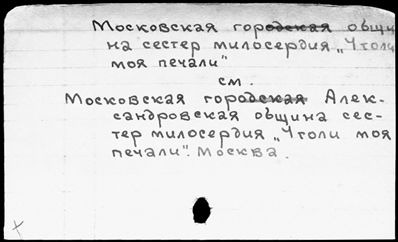 Московская городская общи
на сестер милосердия „Утоли
моя печали"
см.
Московская городская Алек-
сандровская община сес-
тер милосердия „Утоли моя
печали". Москва.